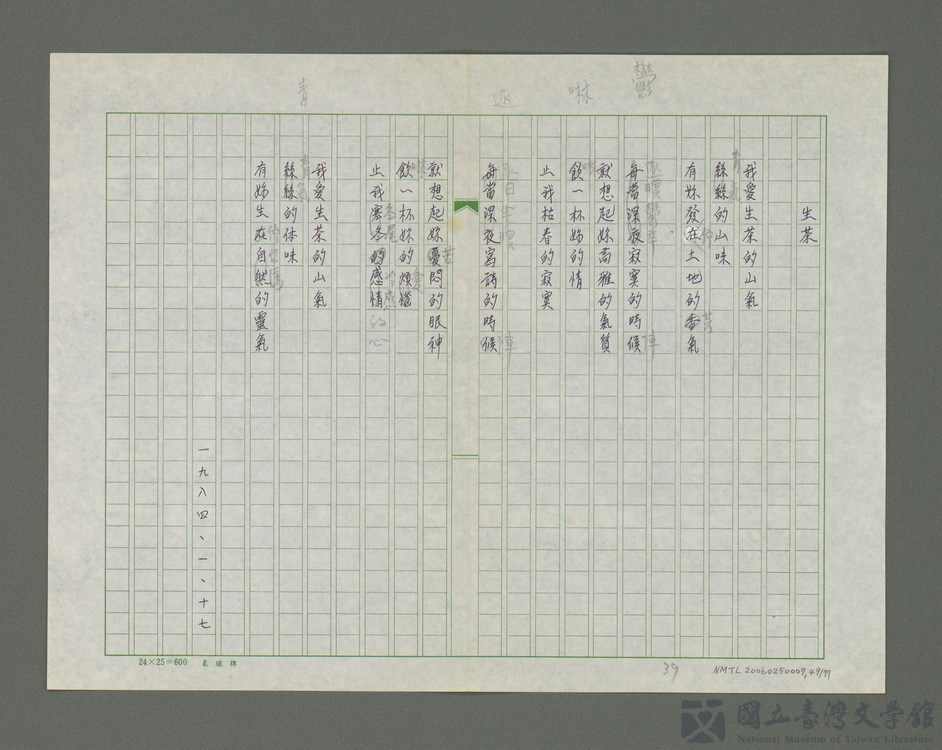 鬱
啉
逐
青
生茶
我愛生茶的山氣
絲絲的山味
有妳發在土地的香氣
每當深夜寂寞的時候
就想起妳高雅的氣質
飲一杯妳的情
止我枯春的寂寞
每當深夜寫詩的時候
就想起妳憂悶的眼神
飲一杯妳的煩惱
止我寒冬的感情
我愛生茶的山氣
絲絲的体味
有妳生在自然的靈氣
一九八四、一、十七
24×25=600
39
NMTL20060250007,49/77
國立臺灣文學館
National Museum of Taiwan Literature